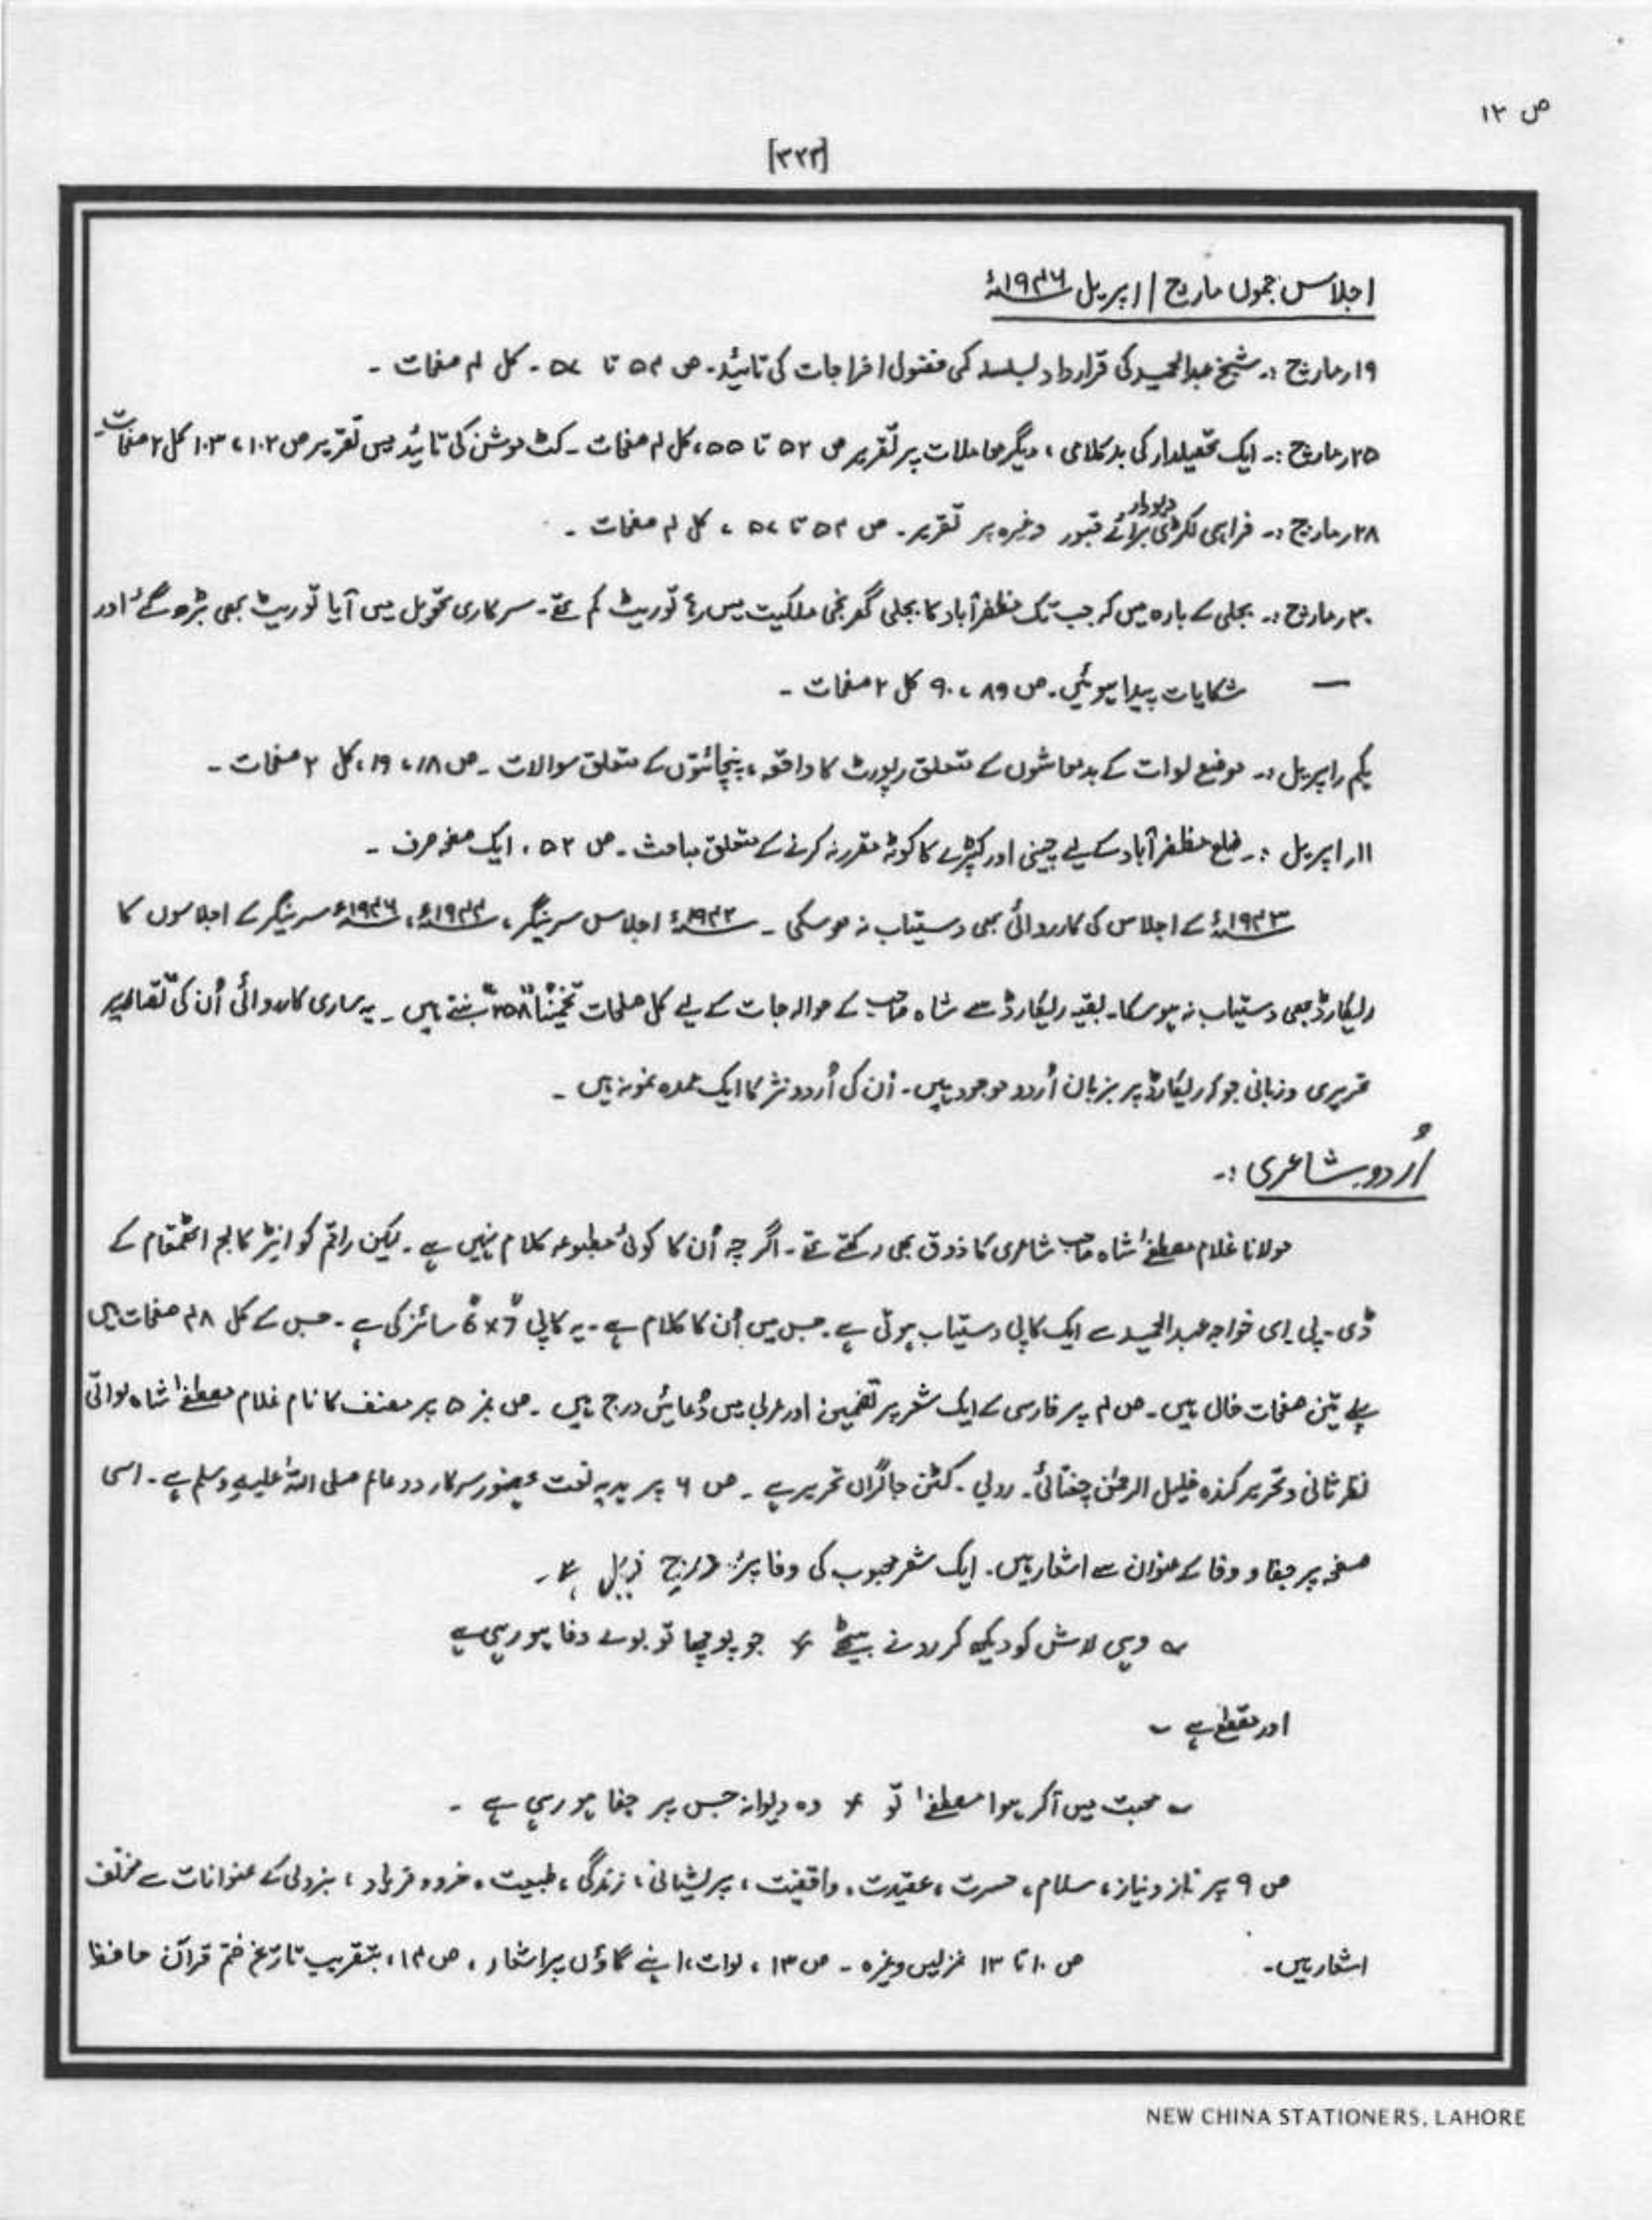 ص ۱۲
[۳۲۳]
اجلاس جموں مارچ / اپریل ۱۹۴۶ء
۱۹؍مارچ :۔ شیخ عبدالحمید کی قرارداد بسلسلہ کمی فضول اخراجات کی تائید۔ ص ۵۴ تا ۵۷ ۔ کل ۴ صفحات ۔
۲۵؍مارچ :۔ ایک تحصیلدار کی بدکلامی ، دیگر معاملات پر تقریر ص ۵۲ تا ۵۵ ، کل ۴ صفحات ۔ کٹ موشن کی تائید میں تقریر ص ۱۰۲ ، ۱۰۳ کل ۲ صفحات۔
۲۸؍مارچ :۔ فراہمی لکڑی دیودار برائے قبور وغیرہ پر تقریر ۔ ص ۵۴ تا ۵۷ ، کل ۴ صفحات ۔
۳۰؍مارچ :۔ بجلی کے بارہ میں کہ جب تک مظفرآباد کا بجلی گھر نجی ملکیت میں رہا تو ریٹ کم تھے۔ سرکاری تحویل میں آیا تو ریٹ بھی بڑھ گئے اور
— شکایات پیدا ہوئیں۔ ص ۸۹ ، ۹۰ کل ۲ صفحات ۔
یکم؍اپریل :۔ موضع لوات کے بدمعاشوں کے متعلق رپورٹ کا واقعہ ، پنچائتوں کے متعلق سوالات ۔ ص ۱۸ ، ۱۹ ، کل ۲ صفحات ۔
۱۱؍اپریل :۔ ضلع مظفرآباد کے لیے چینی اور کپڑے کا کوٹہ مقرر نہ کرنے کے متعلق مباحث ۔ ص ۵۲ ، ایک صفحہ صرف ۔
۱۹۴۳ء کے اجلاس کی کارروائی بھی دستیاب نہ ہو سکی ۔ ۱۹۴۲ء اجلاس سرینگر ، ۱۹۴۴ء ، ۱۹۴۶ء سرینگر کے اجلاسوں کا
ریکارڈ بھی دستیاب نہ ہو سکا۔ بقیہ ریکارڈ سے شاہ صاحب کے حوالہ جات کے لیے کل صفحات تخمیناً "۲۵۸" بنتے ہیں ۔ یہ ساری کارروائی اُن کی تقاریر
تحریری و زبانی جو کہ ریکارڈ پر بزبان اُردو موجود ہیں۔ اُن کی اُردو نثر کا ایک عمدہ نمونہ ہیں ۔
اُردو شاعری :۔
مولانا غلام مصطفےٰ شاہ صاحب شاعری کا ذوق بھی رکھتے تھے ۔ اگر چہ اُن کا کوئی مطبوعہ کلام نہیں ہے ۔ لیکن راقم کو انٹر کالج اٹھمقام کے
ڈی ۔ پی ۔ ای خواجہ عبدالحمید سے ایک کاپی دستیاب ہوئی ہے ۔ جس میں اُن کا کلام ہے ۔ یہ کاپی 7" x 6" سائز کی ہے ۔ جس کے کل ۴۸ صفحات ہیں
پہلے تین صفحات خالی ہیں ۔ ص ۴ پر فارسی کے ایک شعر پر تضمین اور عربی میں دُعائیں درج ہیں ۔ ص نمبر ۵ پر مصنف کا نام غلام مصطفےٰ شاہ لواتی
نظر ثانی و تحریر کنندہ خلیل الرحمٰن چغتائی ۔ رولی ۔ کٹن جاگراں تحریر ہے ۔ ص ۶ پر ہدیہ نعت بحضور سرکار دو عالم صلی اللہ علیہ وسلم ہے ۔ اسی
صفحہ پر جفا و وفا کے عنوان سے اشعار ہیں ۔ ایک شعر محبوب کی وفا پر درج ذیل ہے ۔
؎ وہی لاش کو دیکھ کر رونے بیٹھے ٭ جو پوچھا تو بولے وفا ہو رہی ہے
اور مقطع ہے ؎
؎ محبت میں آکر ہوا مصطفےٰ تو ٭ وہ دیوانہ جس پر جفا ہو رہی ہے ۔
ص ۹ پر ناز و نیاز ، سلام ، حسرت ، عقیدت ، واقفیت ، پریشانی ، زندگی ، طبیعت ، بزدلی کے عنوانات سے مختلف
اشعار ہیں ۔ ص ۱۰ تا ۱۳ غزلیں وغیرہ ۔ ص ۱۳ ، لوات ، اپنے گاؤں پر اشعار ، ص ۱۴ ، بتقریب تاریخ ختم قرآن حافظ
NEW CHINA STATIONERS, LAHORE